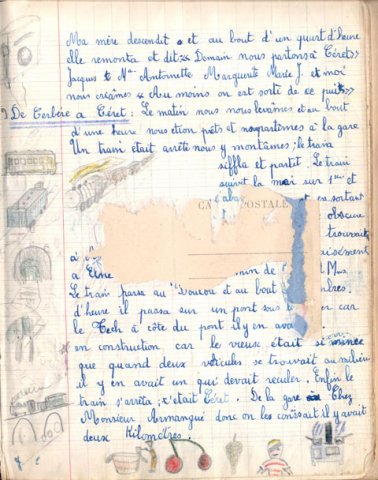 Ma mère descendit et au bout d'un quart d'heure
elle remonta et dit: «Demain nous partons à Céret»
Jacques Antoinette Marguerite Marie J. et moi
nous criâmes « Au moins on est sortie de ce puits»
De Cerbère a Céret: Le matin nous nous levâmes et au bout
d'une heure nous étion prêts et nous partîmes a la gare
Un train était arrêté nous y montâmes; le train
siffla et partit. Le train
suivit la sur et
en sortant
CA POSTALE obscure
trouvait
aisément
a Elne
Le train passa au et au bout
d'heure il passa sur un pont sous car
le Tech à côté du pont il y en avait
en construction car le vieux était si mince
que quand deux véhicules se trouvait au milieu
il y en avait un qui devait reculer. Enfin le
train s'arrêta; c'était Céret. De la gare Chez
Monsieur Armangué donc on les connait il y avait
deux Kilomètres.